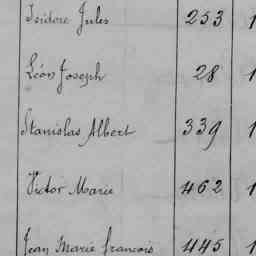 Isidore Jules 253 1
Léon Joseph 28 1
Stanislas Albert 339 1
Victor Marie 462 1
Jean Marie françois 445 1